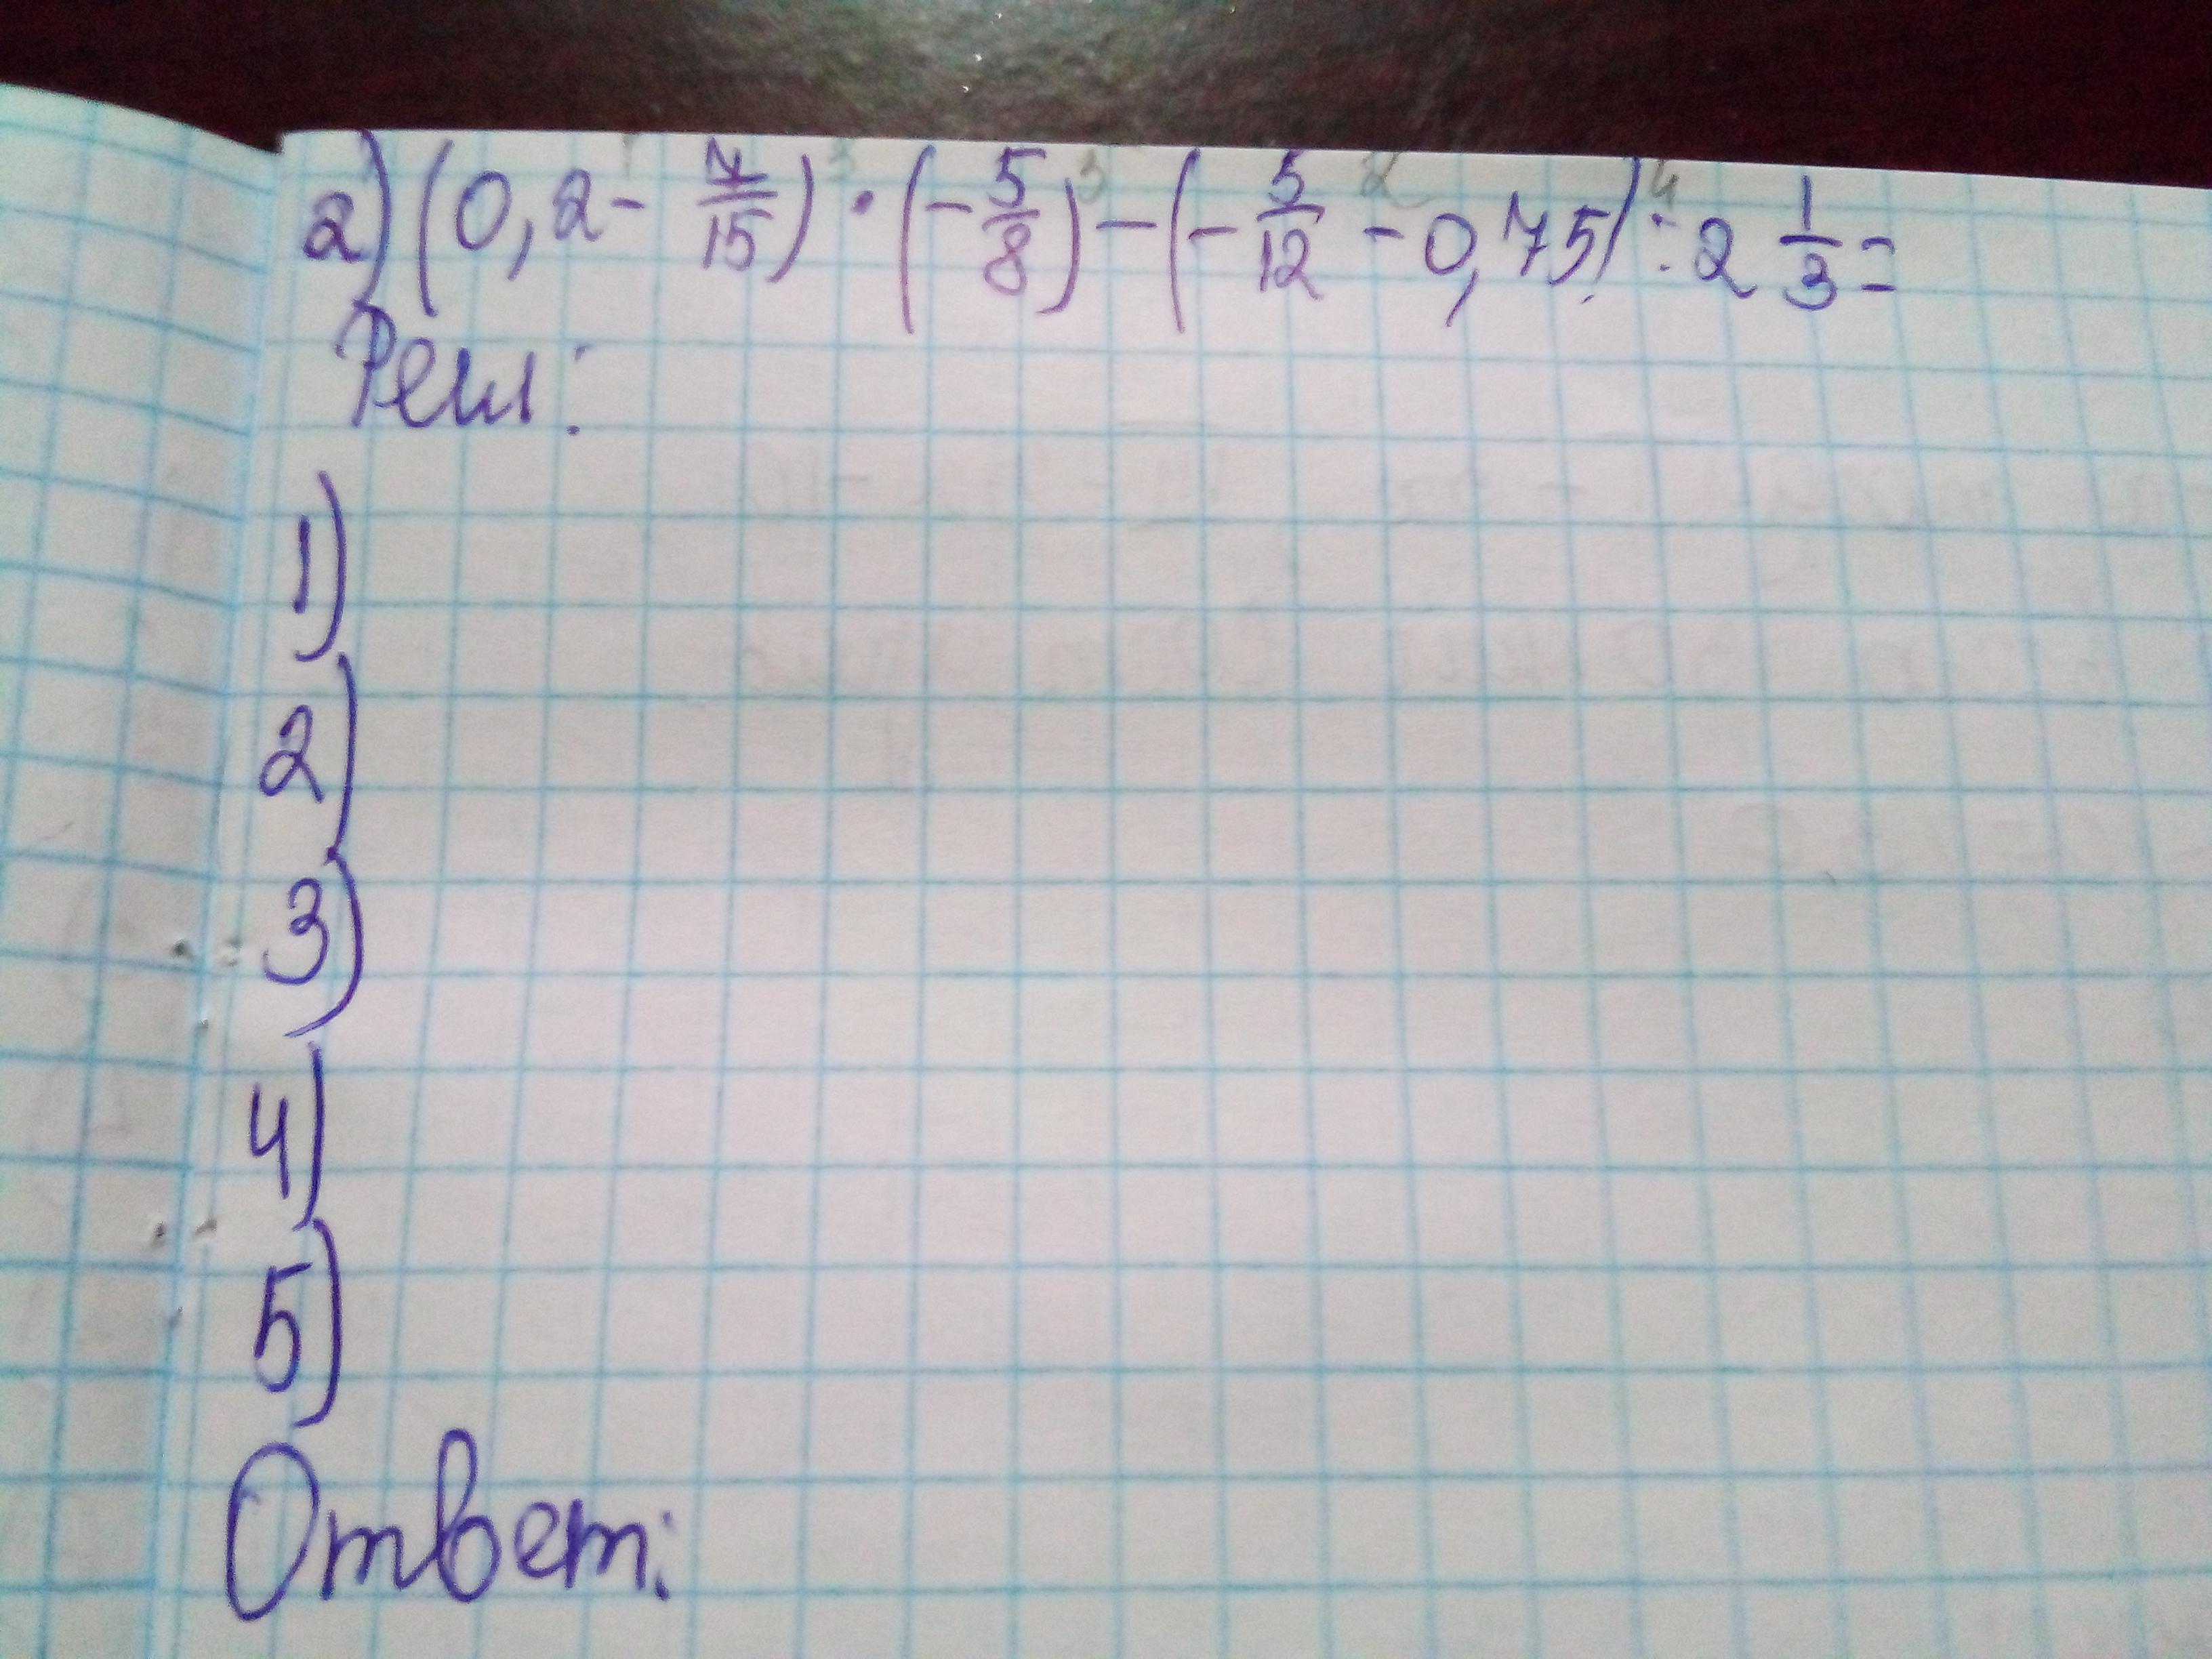 2) (0,2 - 7/15) · (- 5/8) - (- 5/12 - 0,75) : 2 1/3 =
Реш:
1)
2)
3)
4)
5)
Ответ: